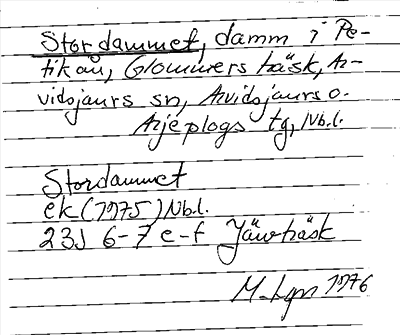 Stordammet, damm i Pe-
tikån, Glommersträsk, Ar-
vidsjaurs sn, Arvidsjaurs o.
Arjeplogs tg, Nb.l.
Stordammet
ek (1975) Nb.l.
23J 6-7 e-f Jävträsk
M-Lgn 1976